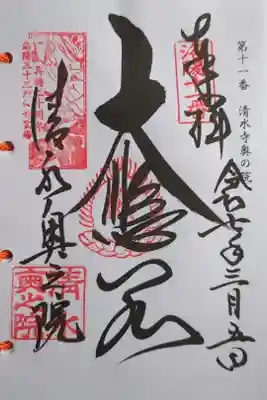 第十一番 清水寺奥の院
奉拝
令和七年三月五日
大悲閣
清水奥之院
清水
奥之院